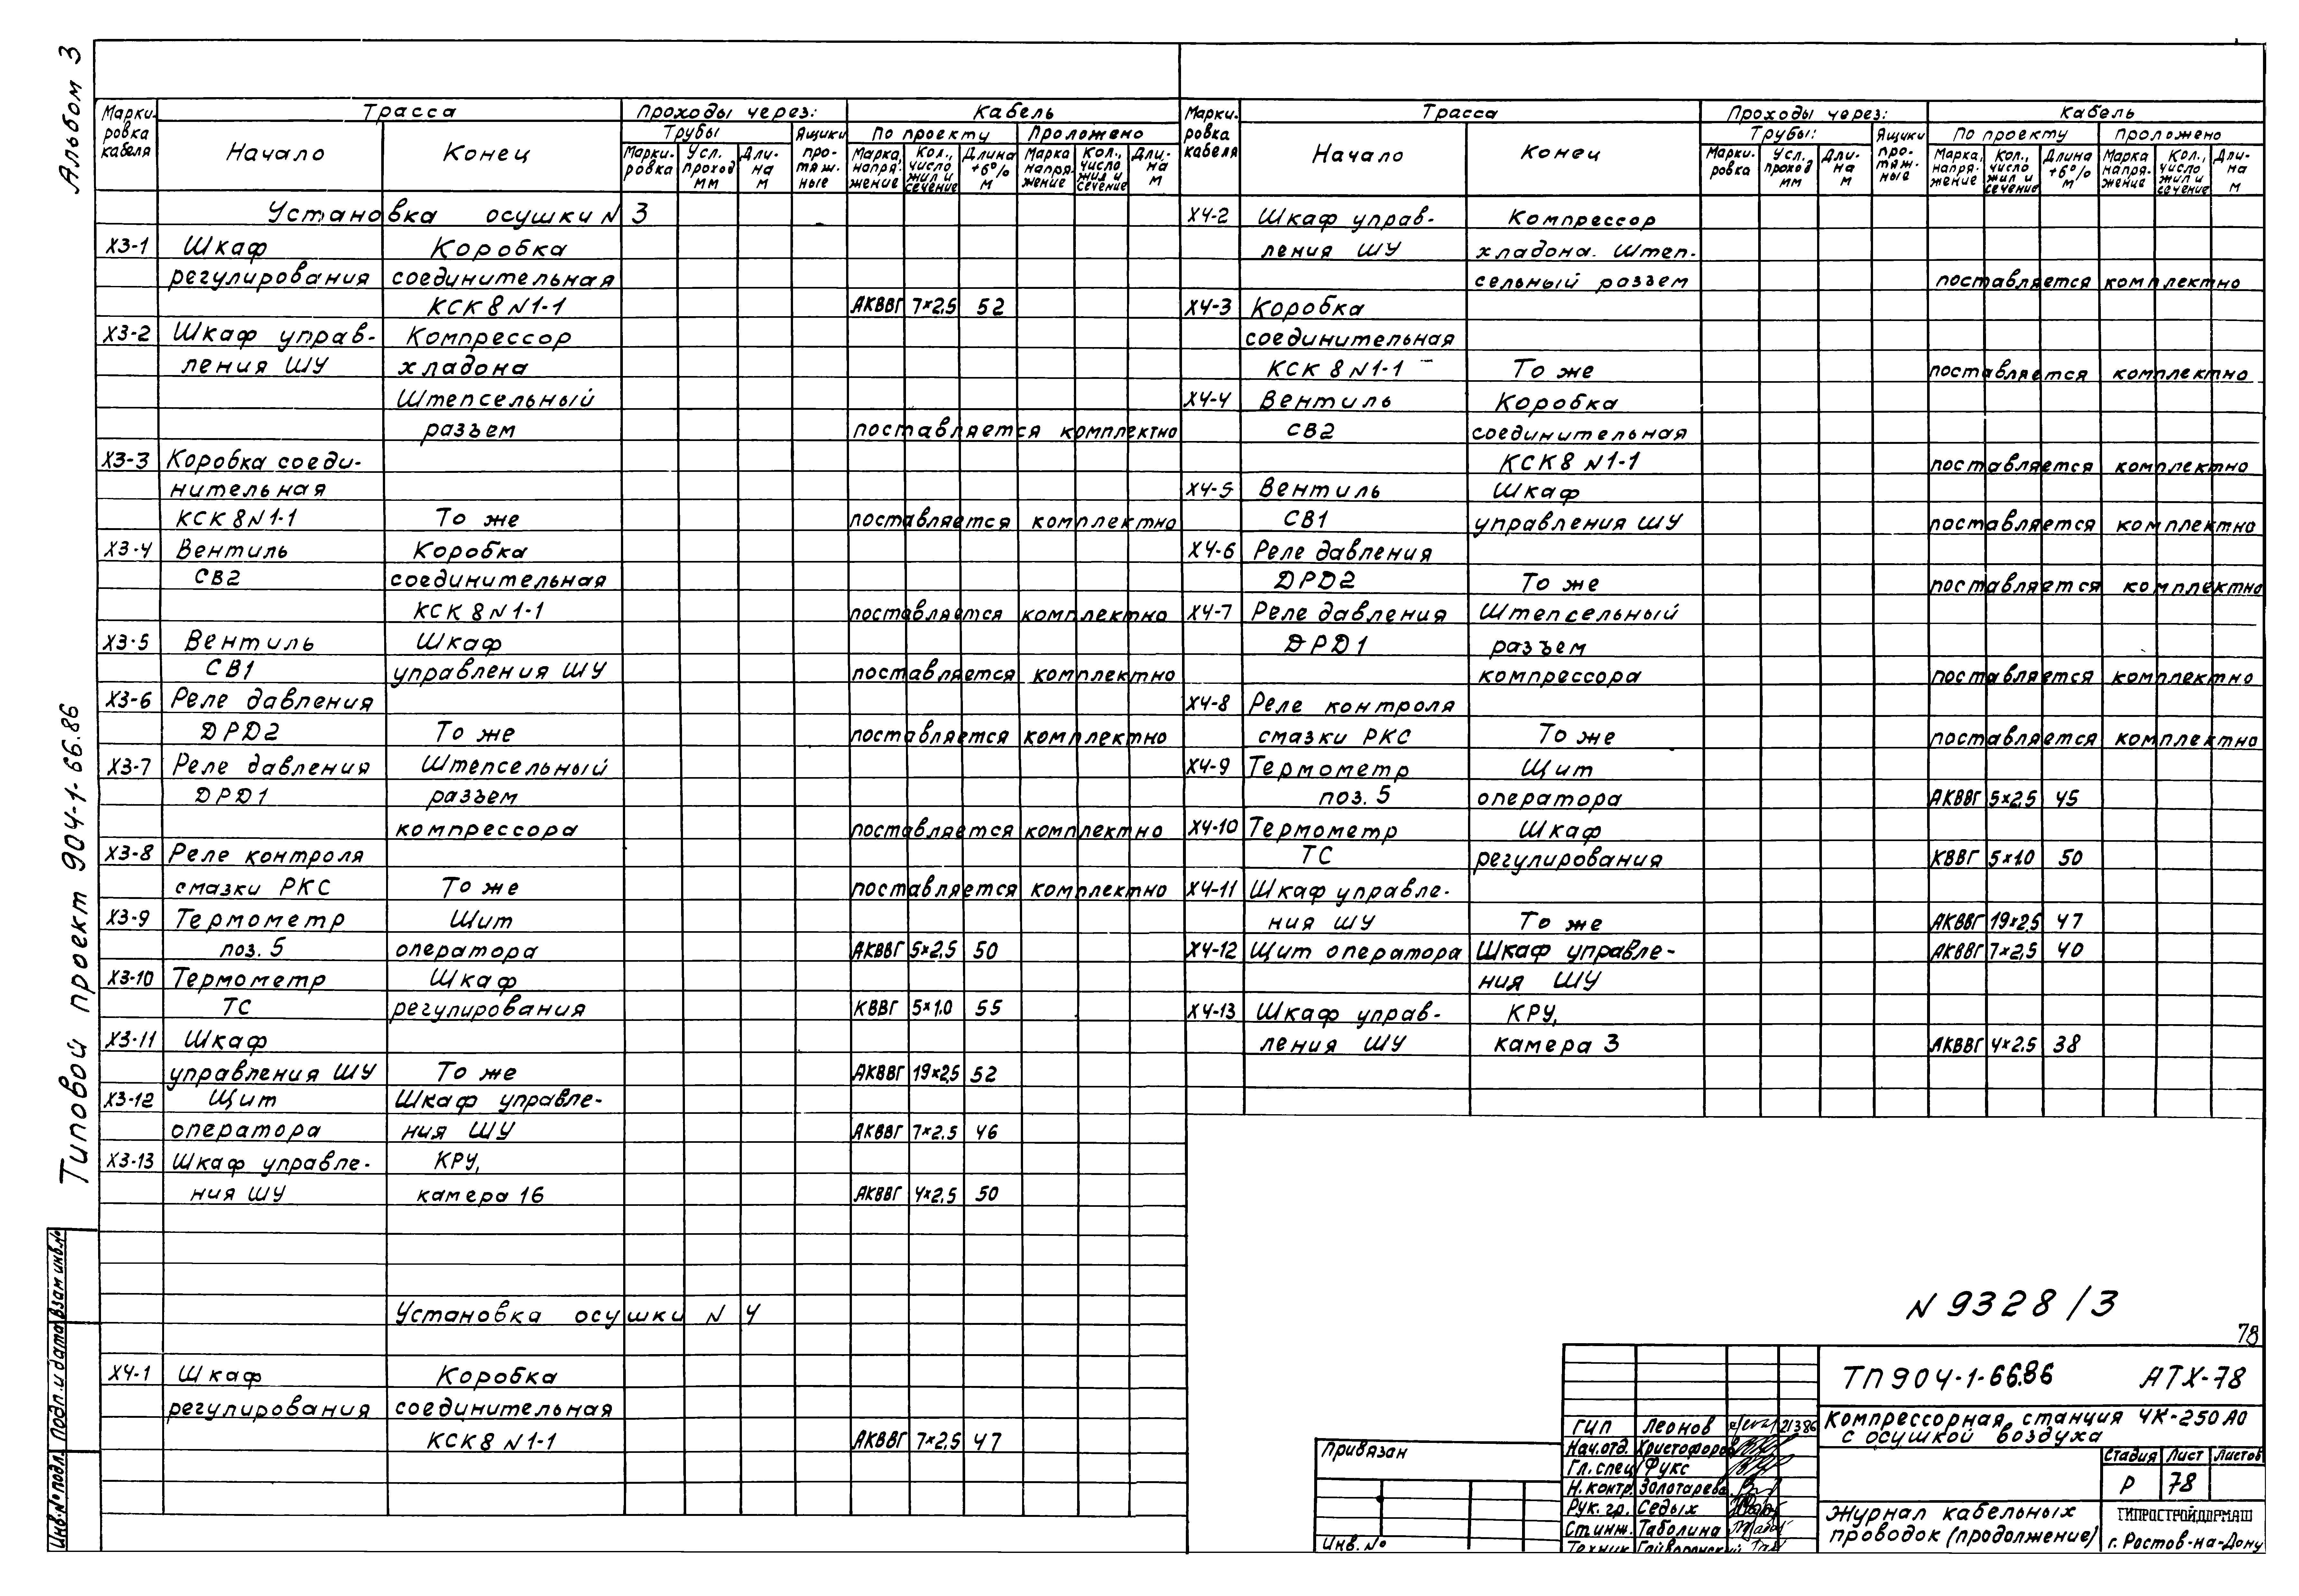 Альбом 3
Типовой проект 904-1-66.86
Инв.№ подл. Подп. и дата Взам инв.№
Марки-
ровка
кабеля
Трасса
Начало
Конец
Проходы через:
Трубы
Марки-
ровка
Усл.
проход
мм
Дли-
на
м
Ящики
про-
тяж-
ные
Кабель
По проекту
Проложено
Марка,
напря-
жение
Кол.,
число
жил и
сечение
Длина
+6%
м
Марка
напря-
жение
Кол.,
число
жил и
сечение
Дли-
на
м
Установка осушки № 3
Х3-1 Шкаф Коробка
регулирования соединительная
КСК 8 №1-1 АКВВГ 7×2,5 52
Х3-2 Шкаф управ- Компрессор
ления ШУ хладона
Штепсельный
разъем поставляется комплектно
Х3-3 Коробка соеди-
нительная
КСК 8 №1-1 То же поставляется комплектно
Х3-4 Вентиль Коробка
СВ2 соединительная
КСК 8 №1-1 поставляется комплектно
Х3-5 Вентиль Шкаф
СВ1 управления ШУ поставляется комплектно
Х3-6 Реле давления
ДРД2 То же поставляется комплектно
Х3-7 Реле давления Штепсельный
ДРД1 разъем
компрессора поставляется комплектно
Х3-8 Реле контроля
смазки РКС То же поставляется комплектно
Х3-9 Термометр Щит
поз. 5 оператора АКВВГ 5×2,5 50
Х3-10 Термометр Шкаф
ТС регулирования КВВГ 5×1.0 55
Х3-11 Шкаф
управления ШУ То же АКВВГ 19×2,5 52
Х3-12 Щит Шкаф управле-
оператора ния ШУ АКВВГ 7×2.5 46
Х3-13 Шкаф управле- КРУ,
ния ШУ камера 16 АКВВГ 4×2,5 50
Установка осушки № 4
Х4-1 Шкаф Коробка
регулирования соединительная
КСК 8 №1-1 АКВВГ 7×2,5 47
Марки-
ровка
кабеля
Трасса
Начало
Конец
Проходы через:
Трубы:
Марки-
ровка
Усл.
проход
мм
Дли-
на
м
Ящики
про-
тяж-
ные
Кабель
По проекту
Проложено
Марка,
напря-
жение
Кол.,
число
жил и
сечение
Длина
+6%
м
Марка
напря-
жение
Кол.,
число
жил и
сечение
Дли-
на
м
Х4-2 Шкаф управ- Компрессор
ления ШУ хладона. Штеп-
сельный разъем поставляется комплектно
Х4-3 Коробка
соединительная
КСК 8 №1-1 То же поставляется комплектно
Х4-4 Вентиль Коробка
СВ2 соединительная
КСК8 №1-1 поставляется комплектно
Х4-5 Вентиль Шкаф
СВ1 управления ШУ поставляется комплектно
Х4-6 Реле давления
ДРД2 То же поставляется комплектно
Х4-7 Реле давления Штепсельный
ДРД1 разъем
компрессора поставляется комплектно
Х4-8 Реле контроля
смазки РКС То же поставляется комплектно
Х4-9 Термометр Щит
поз. 5 оператора АКВВГ 5×2,5 45
Х4-10 Термометр Шкаф
ТС регулирования КВВГ 5×1.0 50
Х4-11 Шкаф управле-
ния ШУ То же АКВВГ 19×2,5 47
Х4-12 Щит оператора Шкаф управле- АКВВГ 7×2,5 40
ния ШУ
Х4-13 Шкаф управ- КРУ,
ления ШУ камера 3 АКВВГ 4×2.5 38
№ 9328/3
78
ТП 904-1-66.86 АТХ-78
Компрессорная станция 4К-250 АО
с осушкой воздуха
Стадия Лист Листов
Р 78
Журнал кабельных
проводок (продолжение)
ГИПРОСТРОЙДОРМАШ
г. Ростов-на-Дону
ГИП Леонов 21386
Нач.отд. Христофоров
Гл. спец Фукс
Н. контр. Золотарева
Рук. гр. Седых
Ст. инж. Таболина
Техник
Привязан
Инв. №